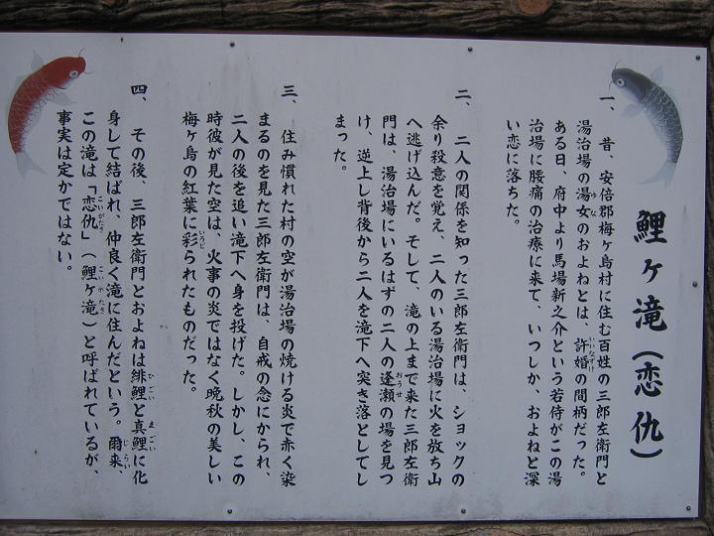 鯉ヶ滝（恋仇）
一、昔、安倍郡梅ヶ島村に住む百姓の三郎左衛門と
湯治場の湯女のおよねとは、許婚の間柄だった。
ある日、府中より馬場新之介という若侍がこの湯
治場に腰痛の治療に来て、いつしか、およねと深
い恋に落ちた。
二、二人の関係を知った三郎左衛門は、ショックの
余り殺意を覚え、二人のいる湯治場に火を放ち山
へ逃げ込んだ。そして、滝の上まで来た三郎左衛
門は、湯治場にいるはずの二人の逢瀬の場を見つ
け、逆上し背後から二人を滝下へ突き落としてし
まった。
三、住み慣れた村の空が湯治場の焼ける炎で赤く染
まるのを見た三郎左衛門は、自戒の念にかられ、
二人の後を追い滝下へ身を投げた。しかし、この
時彼が見た空は、火事の炎ではなく晩秋の美しい
梅ヶ島の紅葉に彩られたものだった。
四、その後、三郎左衛門とおよねは緋鯉と真鯉に化
身して結ばれ、仲良く滝に住んだという。爾来、
この滝は「恋仇」（鯉ヶ滝）と呼ばれているが、
事実は定かではない。